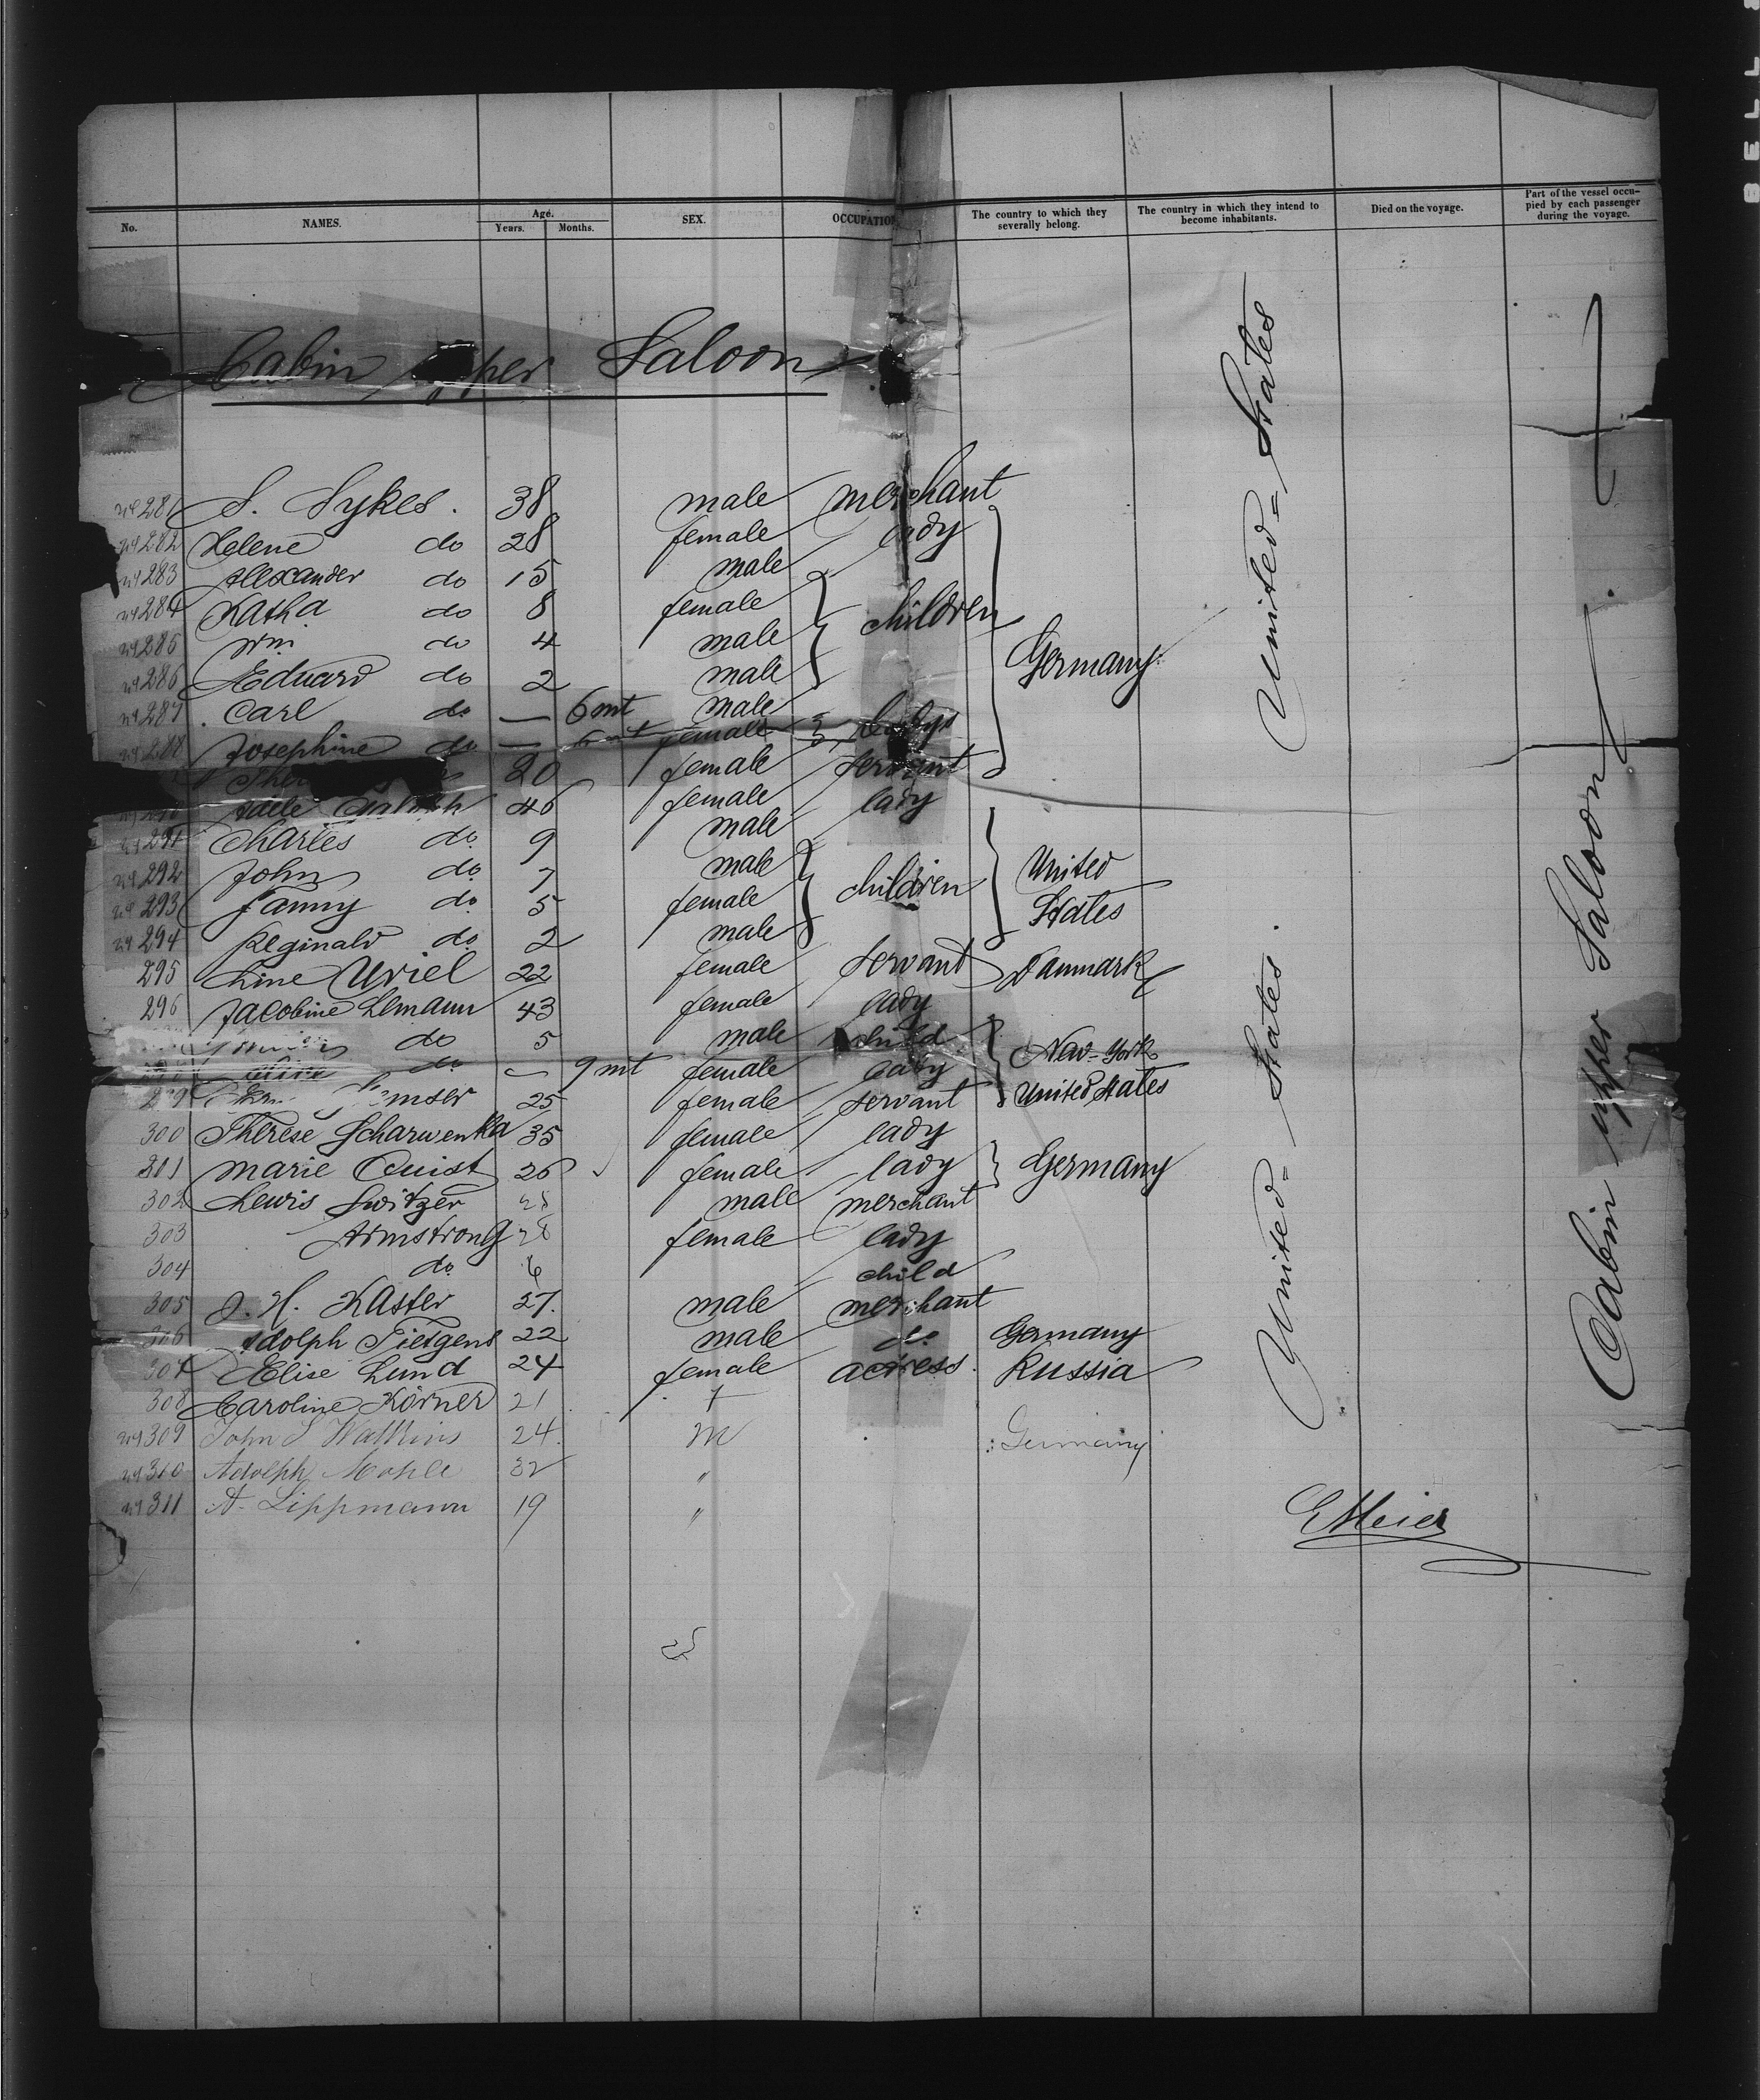 No. NAMES. Age. Years. Months. SEX. OCCUPATION The country to which they severally belong. The country in which they intend to become inhabitants. Died on the voyage. Part of the vessel occupied by each passenger during the voyage.
Cabin upper Saloon
281 S. Sykes. 38 male merchant
282 Helene do 28 female lady
283 Alexander do 15 male
284 Katha do 8 female children
285 Wm do 4 male
286 Eduard do 2 male Germany
287 Carl do — 6 mt male
288 Josephine do — 6 mt female
20 female servant
46 female lady
291 Charles do 9 male
292 John do 7 male children United
293 Fanny do 5 female States
294 Reginald do 2 male
295 Line Uriel 22 female servant Danmark
296 Jacobine Lemann 43 female lady
do 5 male child New-York
do — 9 mt female baby United States
25 female servant
300 Therese Scharwenka 35 female lady
301 Marie Quist 26 female lady Germany
302 Lewis Switzer 28 male merchant
303 Armstrong 28 female lady
304 do 6 child
305 J. H. Kaster 27. male merchant
306 Adolph Tietgens 22 male do Germany
307 Elise Lund 24 female actress. Russia
308 Caroline Körner 21 f
309 John S Watkins 24. m Germany
310 Adolph Mohle 32 "
311 A. Lippmann 19 "
United-States
United-States.
Cabin upper Saloon
EMeier
BELL